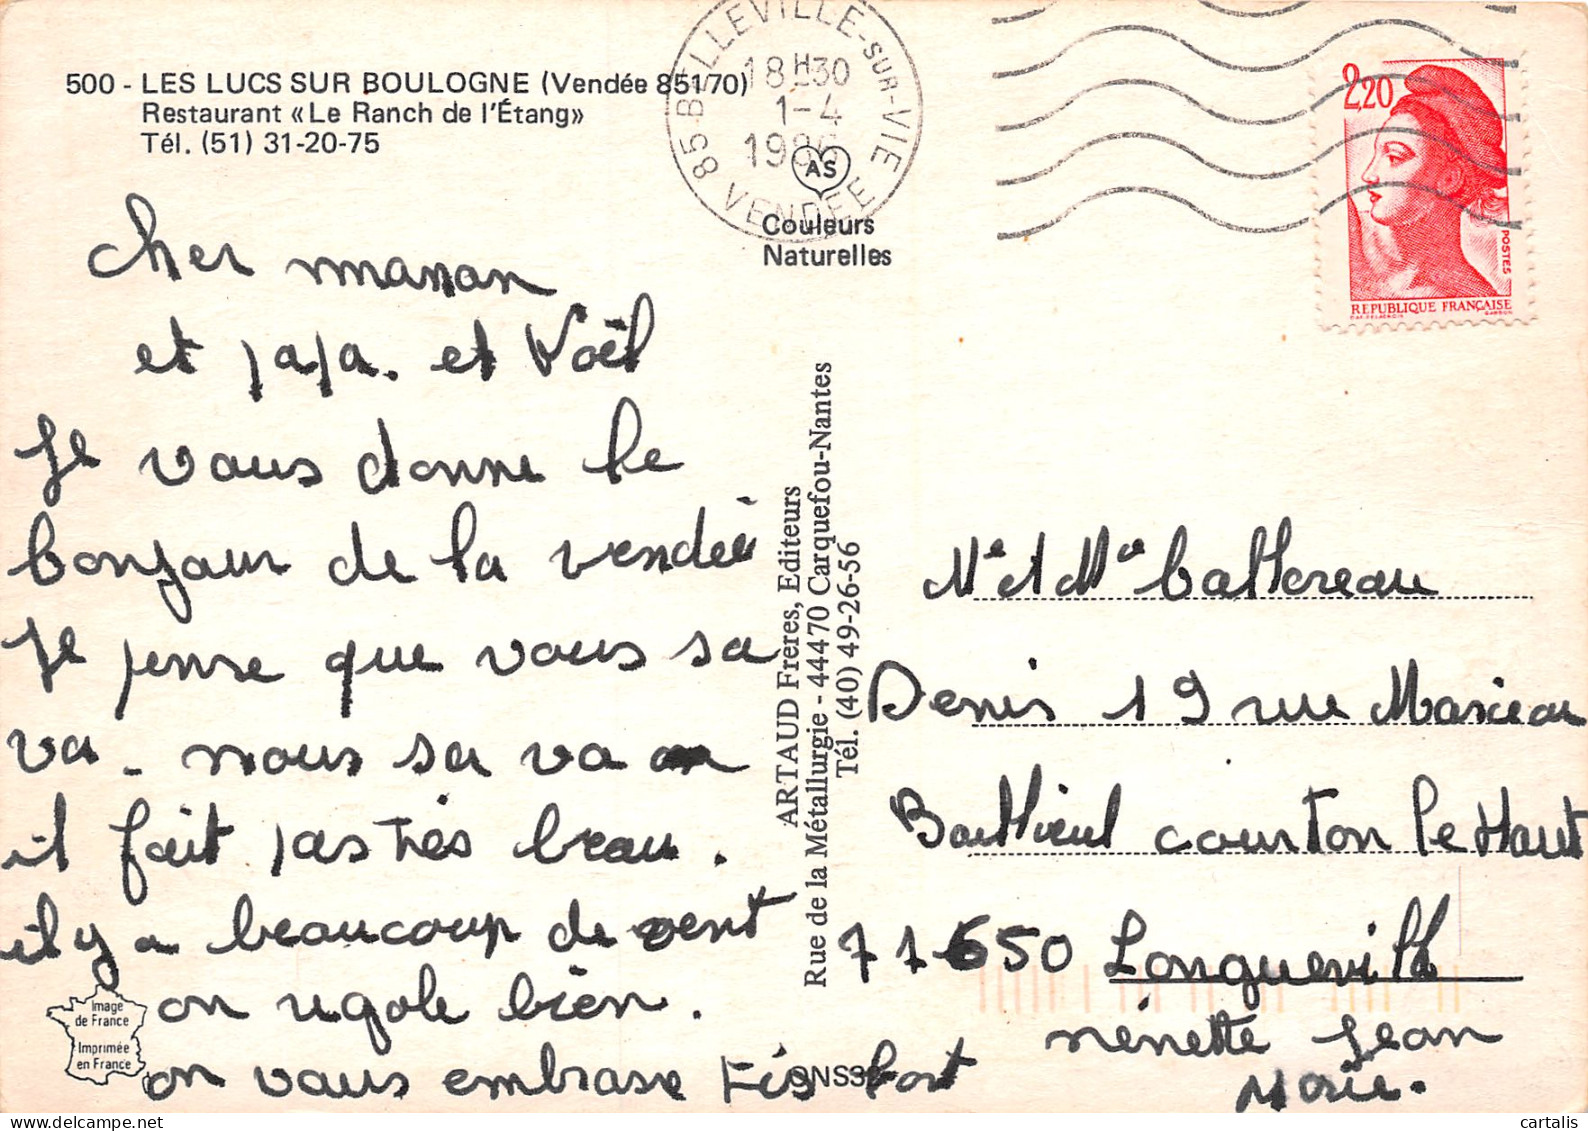 500 - LES LUCS SUR BOULOGNE (Vendée 85170)
Restaurant «Le Ranch de l'Étang»
Tél. (51) 31-20-75
85 BELLEVILLE-SUR-VIE
18H30
1-4
1986
VENDÉE
AS
Couleurs
Naturelles
2,20
POSTES
REPUBLIQUE FRANÇAISE
cher maman
et papa. et Noël
Je vous donne le
bonjour de la vendée
Je pense que vous sa
va - nous sa va
il fait pas très beau.
il y a beaucoup de vent
on rigole bien.
on vous embrasse très fort
nénette Jean
Marie.
ARTAUD Frères, Editeurs
Rue de la Métallurgie - 44470 Carquefou-Nantes
Tél. (40) 49-26-56
Mr et Mme
Denis 19 rue Marceau
courton le Haut
77650 Longueville
Image
de France
Imprimée
en France